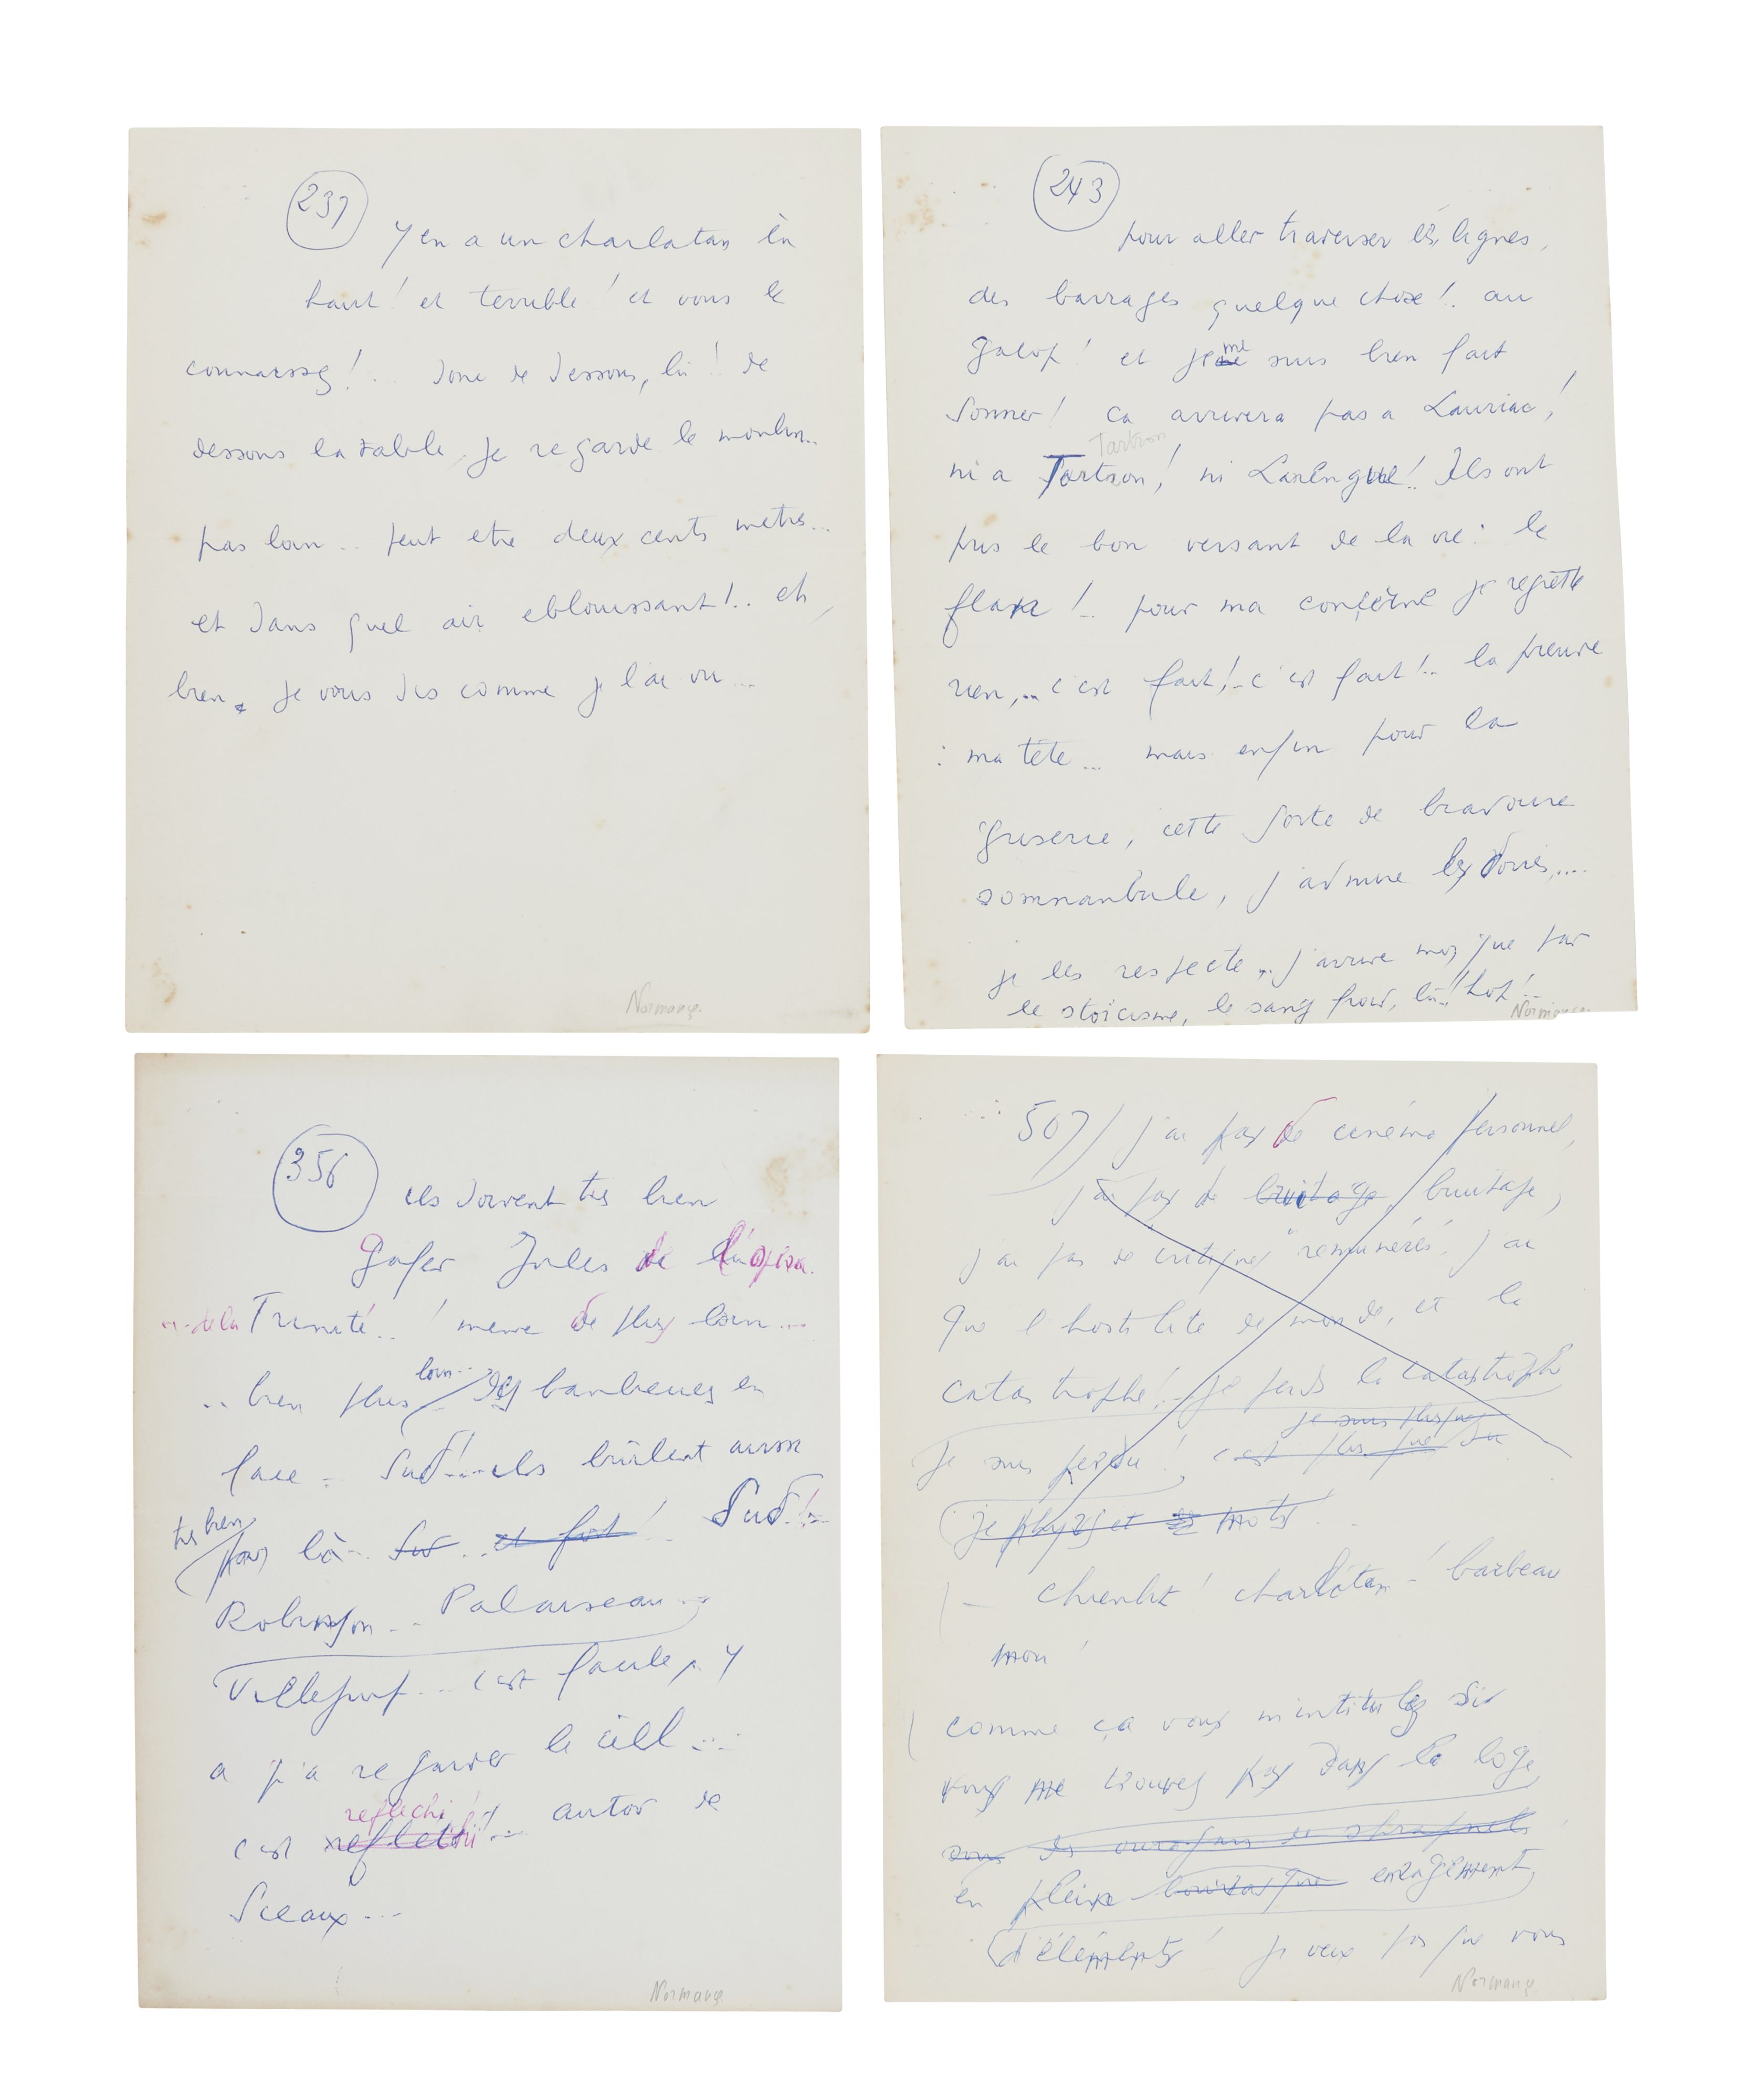 237
Y en a un charlatan en
haut ! et terrible ! et vous le
connaissez !... donc de dessous, là ! de
dessous la table je regarde le moulin...
pas loin .. peut etre deux cents metres...
et dans quel air eblouissant !.. eh
bien, je vous dis comme je l'ai vu ...
Normance.
243
pour aller traverser les lignes,
des barrages quelque chose !. au
galop ! et je me suis bien fait
sonner ! ca arrivera pas a Lauriac !
Tartron
ni a Tartron ! ni Larengue !. Ils ont
pris le bon versant de la vie : le
flanc !.. pour ma conferme je regrette
rien,... c'est fait !.. c'est fait !.. la preuve
: ma tête ... mais enfin pour la
griserie, cette sorte de bravoure
somnanbule, j'admire les doués,....
je les respecte... j'arrive moi que par
le stoïcisme, le sang froid, là !! hop !..
Normance.
356
ils doivent très bien
gafer Jules de l'Opéra.
..de la Trinité.. ! meme de plus loin ...
loin...
.. bien plus des banlieues en
face : Sud !... ils brûlent aussi
très bien
par là .. Sud .. et fort ! .. Sud !..
Robinson .. Palaiseau ...
Villejuif ... c'est facile, Y
a qu'a regarder le ciel ...
reflechi !
c'est reflechi !... autor de
Sceaux ...
Normance
507/ j'ai pas de cinéma personnel,
j'ai pas de bruitage bruitage,
j'ai pas de critiques remunérés, j'ai
que l'hostilité de monde, et la
catastrophe !.. je perds la catastrophe
je suis plus que
Je suis perdu ! c'est plus que du
je plus et mots ! ..
- Chienlit ! charlatan ! barbeau
mou !
comme ça vous m'intitulez si
vous me trouvez pas dans la loge
sous des ouragans de shrapnels
en pleine bourrasque enragement
d'éléments ! je veux pas que vous
Normance